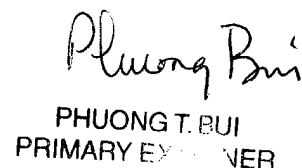 Phuong Bui
PHUONG T. BUI
PRIMARY